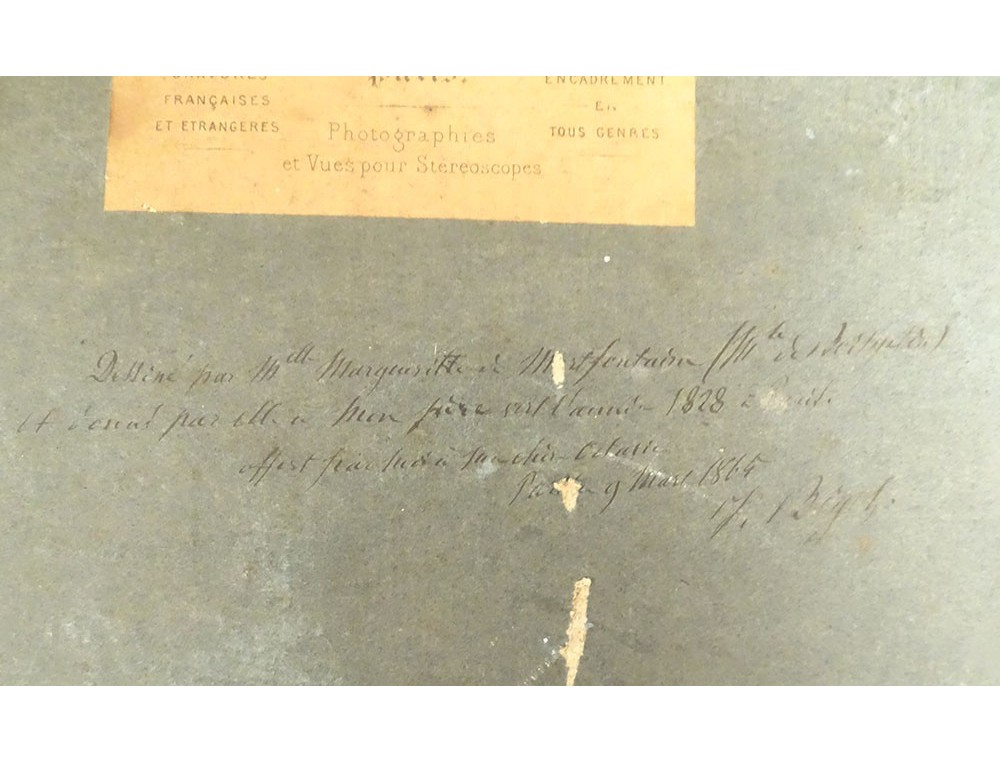 GRAVURES
FRANÇAISES
ET ETRANGERES
Paris.
Photographies
et Vues pour Stéréoscopes
ENCADREMENT
EN
TOUS GENRES
Dessiné par Mlle Margueritte de Montfontaine (Mte de
et donné par elle a Mon père vers l'année 1828 à Paris.
offert par moi à Octavie
Paris 9 Mars 1865